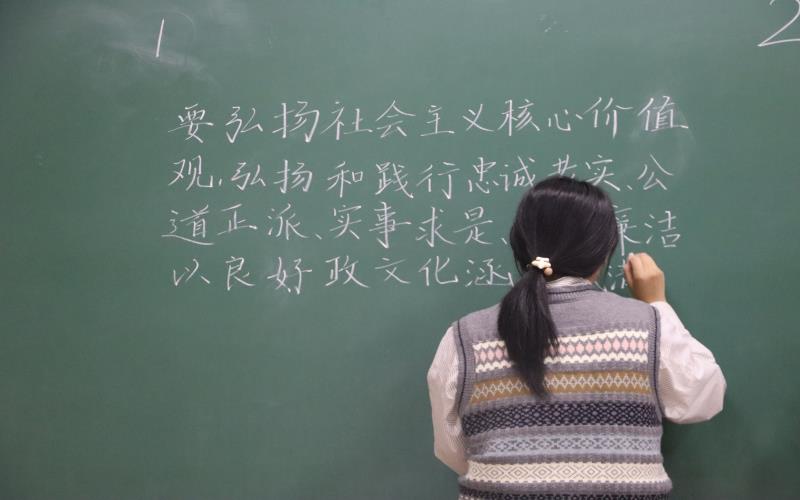 1
2
要弘扬社会主义核心价值
观,弘扬和践行忠诚老实、公
道正派、实事求是、廉洁
以良好政文化涵